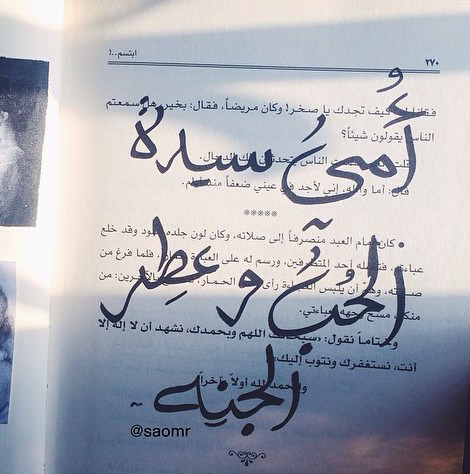 ٢٧٠ ابتسم..!
كيف تجدك يا صخر! وكان مريضاً، فقال: بخير، هل سمعتم
الناس يقولون شيئاً؟
أُميُ سيدة
الناس يتحدثون الدجال.
قال: أما والله، إني لأجد في عيني ضعفاً
*****
كان العبد منصرفاً إلى صلاته، وكان لون جلده أسود وقد خلع
الحُب وعِطر
عباءته، أحد المتطرفين، ورسم له على العباءة فلما فرغ من
صلاته، وهم أن يلبس العباءة رأى الحمار، الآخرين: من
منكم مسح وجهه بعباءتي.
وختاماً نقول: سبحانك اللهم وبحمدك، نشهد أن لا إله إلا
أنت، نستغفرك ونتوب إليك.
والحمد لله أولاً وآخراً
الجنه ~
@saomr